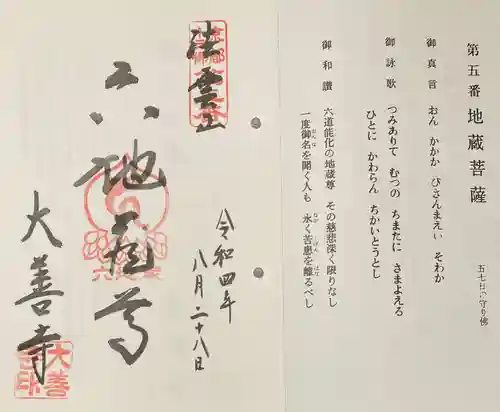 第五番 地蔵菩薩
五七日の守り佛
御真言 おん かかか びさんまえい そわか
御詠歌 つみありて むつの ちまたに さまよえる
ひとに かわらん ちかいとうとし
御和讃 六道能化の地蔵尊 その慈悲深く限りなし
一度御名を聞く人も 永く苦患を離るべし
令和四年
八月二十八日
法雲山
六地蔵尊
大善寺